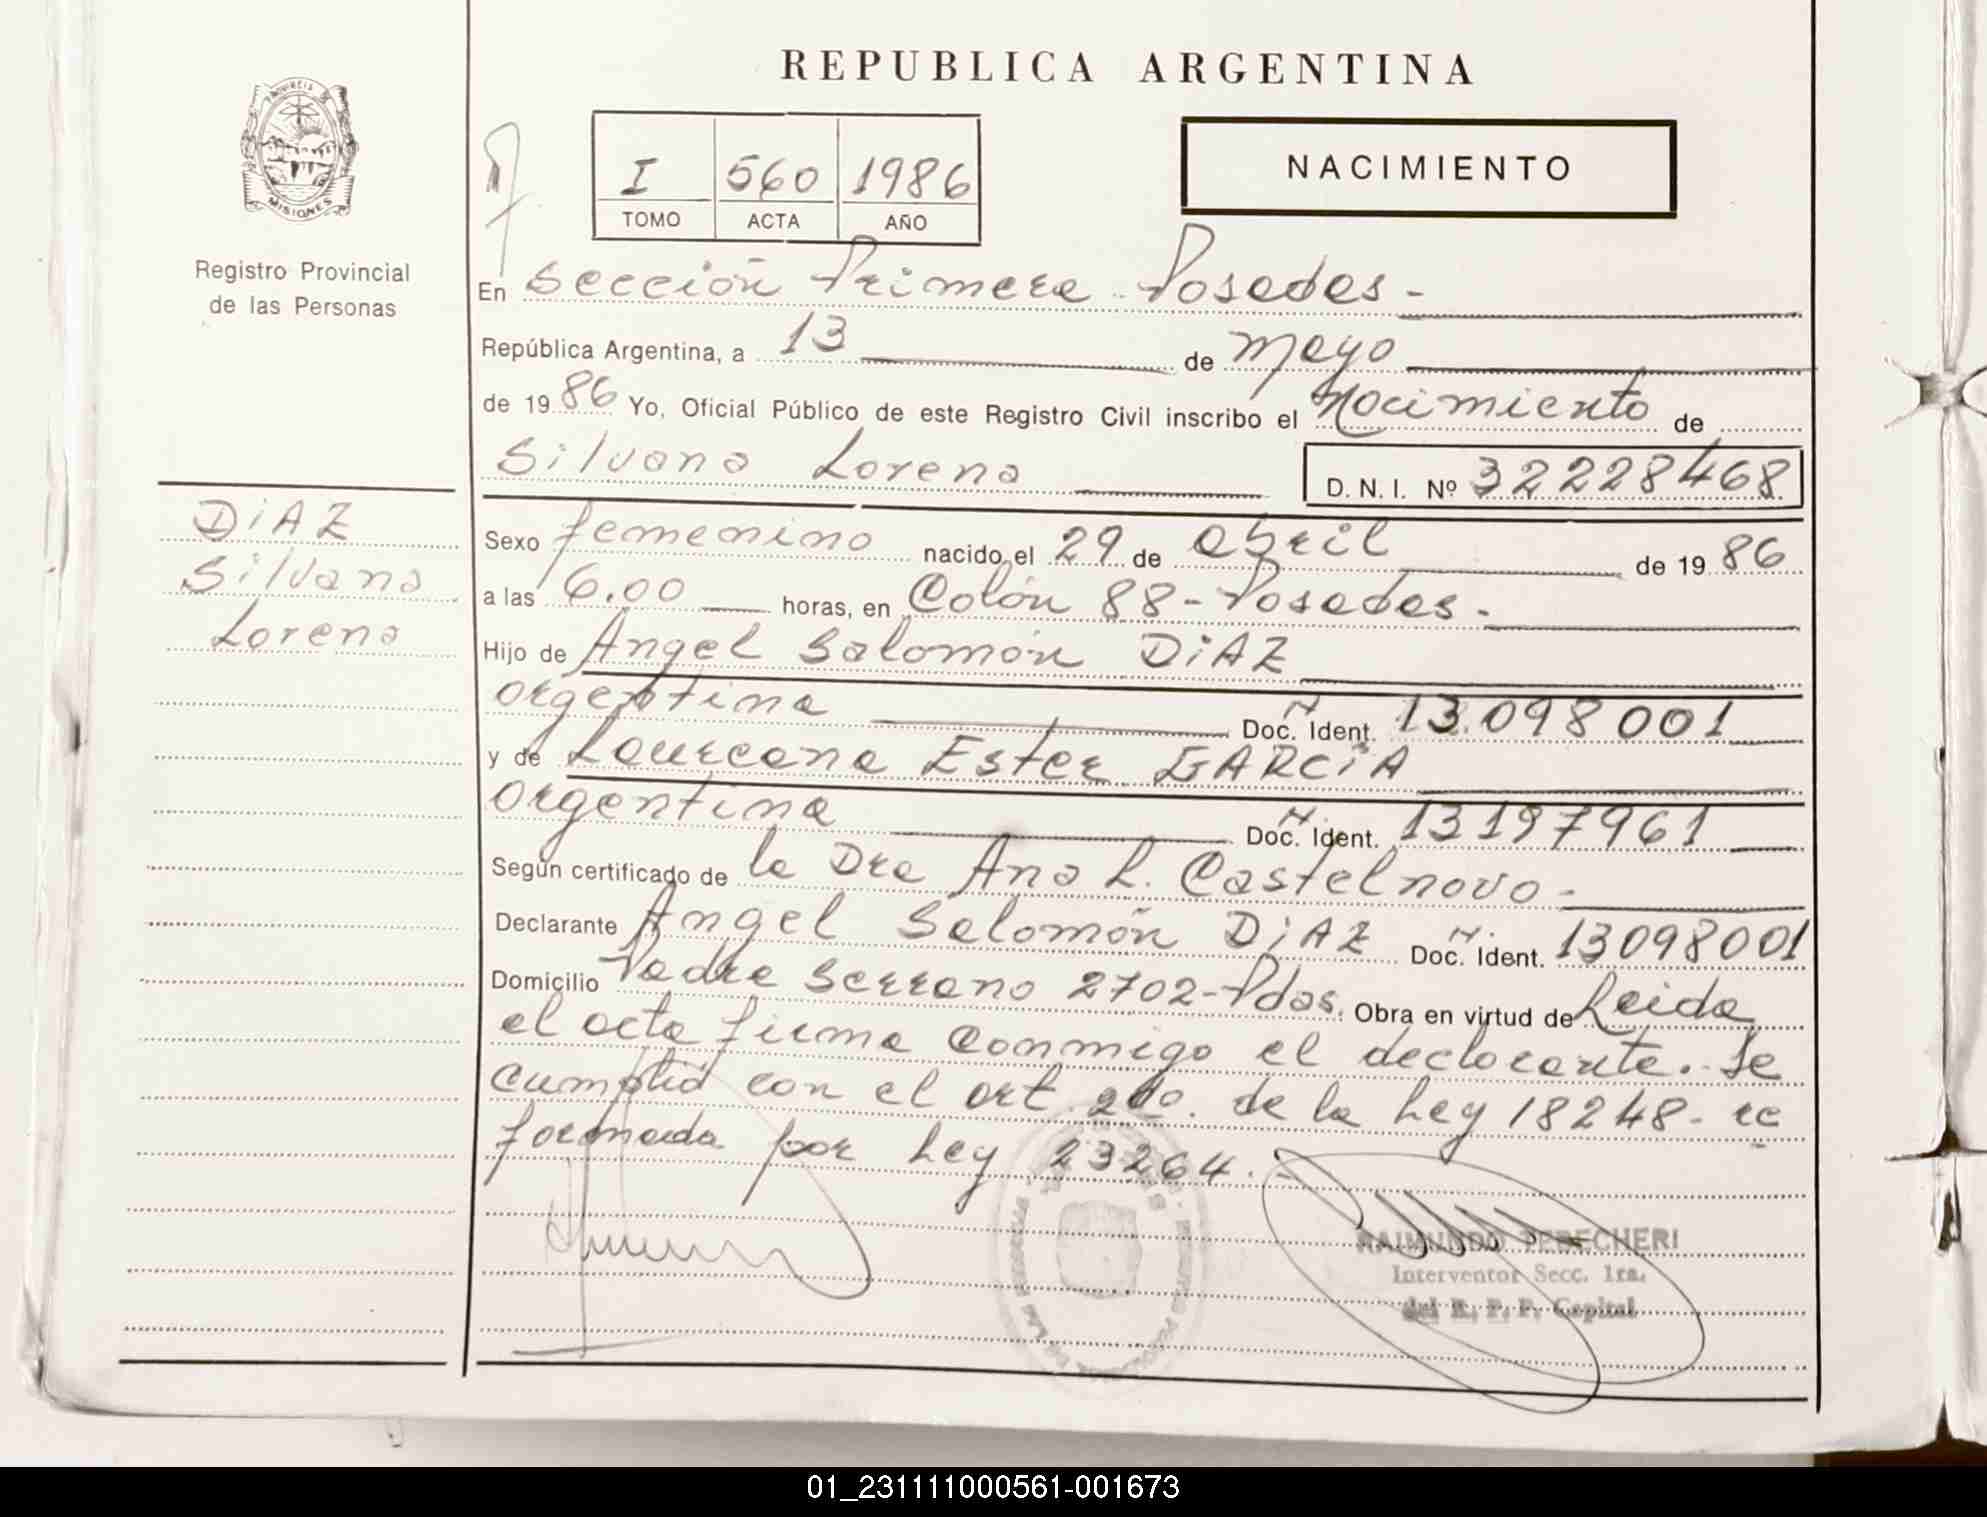 REPUBLICA ARGENTINA
PROVINCIA DE
MISIONES
Registro Provincial
de las Personas
I 560 1986
TOMO ACTA AÑO
NACIMIENTO
En Sección Primera Posadas-
República Argentina, a 13 de mayo
de 1986 Yo, Oficial Público de este Registro Civil inscribo el Nacimiento de
Silvana Lorena D. N. I. Nº 32228468
DiAZ
Silvana
Lorena
Sexo femenino nacido el 29 de abril de 1986
a las 6.00 horas, en Colón 88-Posadas-
Hijo de Angel Salomón DiAZ
argentina Doc. Ident. 13.098001
y de Laureana Ester GARCíA
argentina Doc. Ident. 13197961
Según certificado de la Dra Ana L. Castelnovo-
Declarante Angel Salomón DiAZ Doc. Ident. 13098001
Domicilio Padre Serrano 2702-Pdas. Obra en virtud de Leida
el acta firma conmigo el declarante. Se
cumplió con el art. 2do. de la Ley 18248- re
formada por Ley 23264.-
RAIMUNDO TERECHERI
Interventor Secc. 1ra.
del R. P. P. Capital
01_231111000561-001673